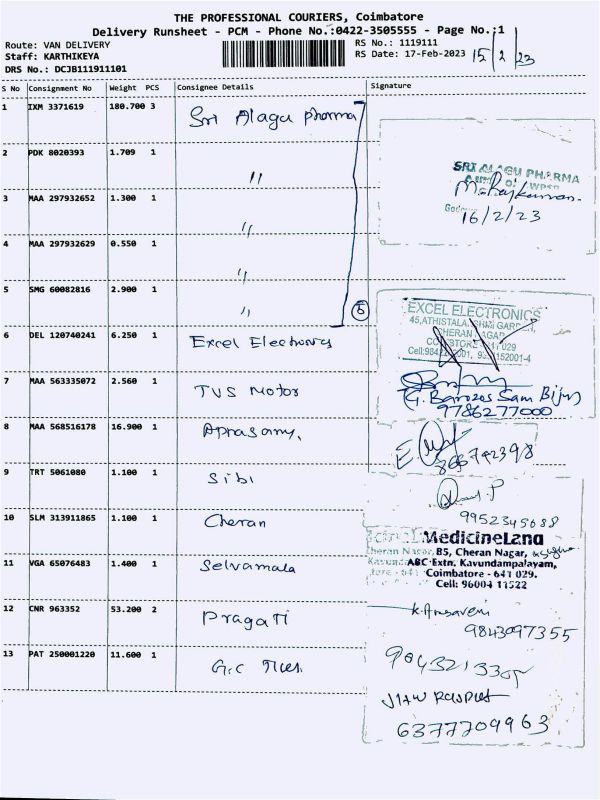 THE PROFESSIONAL COURIERS, Coimbatore
Delivery Runsheet - PCM - Phone No.:0422-3505555 - Page No.:1
Route: VAN DELIVERY
Staff: KARTHIKEYA
DRS No.: DCJB111911101
RS No.: 1119111
RS Date: 17-Feb-2023
15/2/23
S No Consignment No Weight PCS Consignee Details Signature
1 IXM 3371619 180.700 3 Sri Alagu Pharma
2 PDK 8020393 1.709 1 "
3 MAA 297932652 1.300 1 "
4 MAA 297932629 0.550 1 "
5 SMG 60082816 2.900 1 "
SRI ALAGU PHARMA
16/2/23
6 DEL 120740241 6.250 1 Excel Electronics
EXCEL ELECTRONICS
7 MAA 563335072 2.560 1 TVS Motor
(G. Barozos Sam Biju)
9786277000
8 MAA 568516178 16.900 1 Appasamy,
9 TRT 5061080 1.100 1 Sibi
10 SLM 313911865 1.100 1 Cheran
9952345688
MedicineLand
B5, Cheran Nagar,
ABC Extn. Kavundampalayam,
Coimbatore - 641 029.
Cell: 96004 11522
11 VGA 65076483 1.400 1 Selvamala
12 CNR 963352 53.200 2 Pragati
9843097355
13 PAT 250001220 11.600 1
6377709963